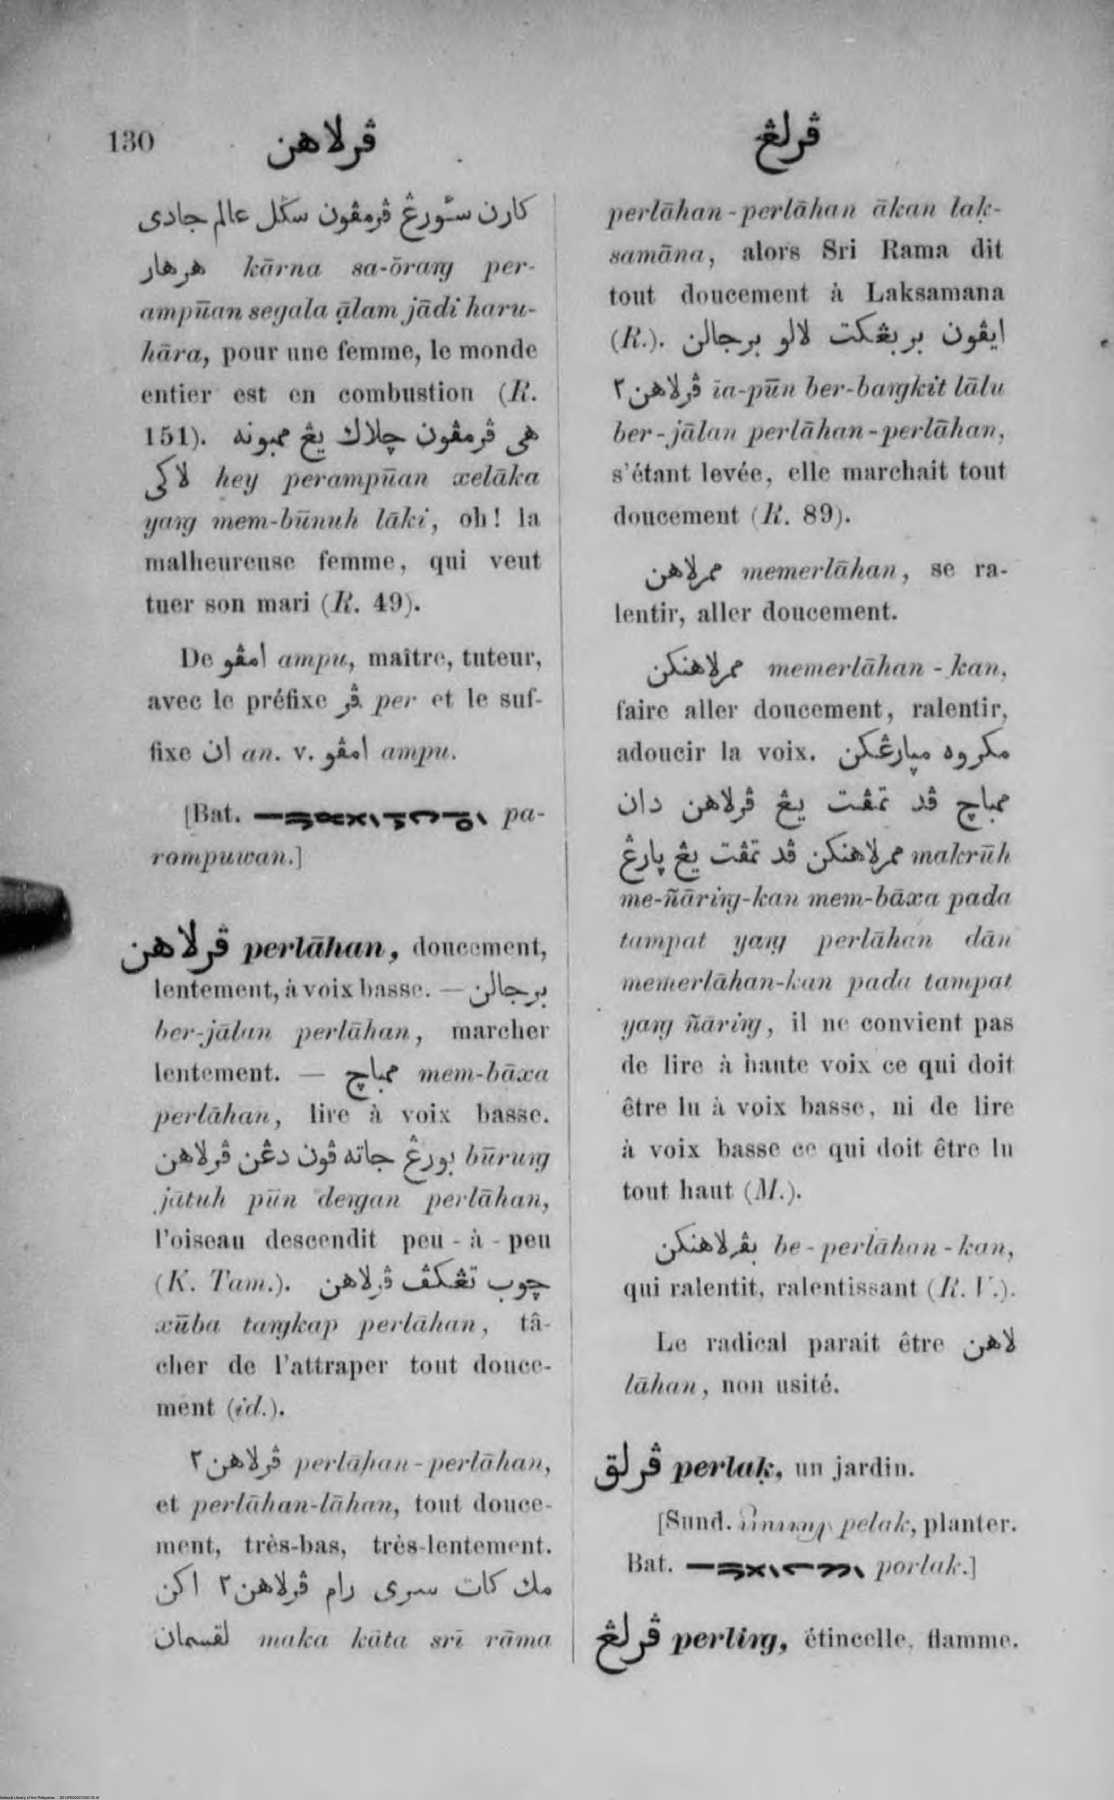 130
ڤرلاهن
ڤرلڠ
كارن سئورڠ ڤرمڤون سكل عالم جادى
هرهار kārna sa-ōraṅg per-
ampūan segala ạ̄lam jādi haru-
hāra, pour une femme, le monde
entier est en combustion (R.
151). هى ڤرمڤون چلاك يڠ ممبونه
لاكى hey perampūan xelāka
yaṅg mem-būnuh lāki, oh! la
malheureuse femme, qui veut
tuer son mari (R. 49).
De امڤو ampu, maître, tuteur,
avec le préfixe ڤر per et le suf-
fixe ان an. v. امڤو ampu.
[Bat. pa-
rompuwan.]
ڤرلاهن perlāhan, doucement,
lentement, à voix basse. — برجالن
ber-jālan perlāhan, marcher
lentement. — ممباچ mem-bāxa
perlāhan, lire à voix basse.
بورڠ جاته ڤون دڠن ڤرلاهن būruṅg
jātuh pūn deṅgan perlāhan,
l'oiseau descendit peu-à-peu
(K. Tam.). چوب تڠكڤ ڤرلاهن
xūba taṅgkap perlāhan, tâ-
cher de l'attraper tout douce-
ment (id.).
ڤرلاهن٢ perlāhan-perlāhan,
et perlāhan-lāhan, tout douce-
ment, très-bas, très-lentement.
مك كات سرى رام ڤرلاهن٢ اكن
لقسمان maka kāta srī rāma
perlāhan-perlāhan ākan laḳ-
samāna, alors Sri Rama dit
tout doucement à Laksamana
(R.). ايڤون بربڠكت لالو برجالن
ڤرلاهن٢ īa-pūn ber-baṅgkit lālu
ber-jālan perlāhan-perlāhan,
s'étant levée, elle marchait tout
doucement (R. 89).
ممرلاهن memerlāhan, se ra-
lentir, aller doucement.
ممرلاهنكن memerlāhan-kan,
faire aller doucement, ralentir,
adoucir la voix. مكروه مڽارڠكن
ممباچ ڤد تمڤت يڠ ڤرلاهن دان
ممرلاهنكن ڤد تمڤت يڠ ڽارڠ makrūh
me-ñāriṅg-kan mem-bāxa pada
tampat yaṅg perlāhan dān
memerlāhan-kan pada tampat
yaṅg ñāriṅg, il ne convient pas
de lire à haute voix ce qui doit
être lu à voix basse, ni de lire
à voix basse ce qui doit être lu
tout haut (M.).
بڤرلاهنكن be-perlāhan-kan,
qui ralentit, ralentissant (R. V.).
Le radical parait être لاهن
lāhan, non usité.
ڤرلق perlaḳ, un jardin.
[Sund. pelak, planter.
Bat. porlak.]
ڤرلڠ perliṅg, étincelle, flamme.